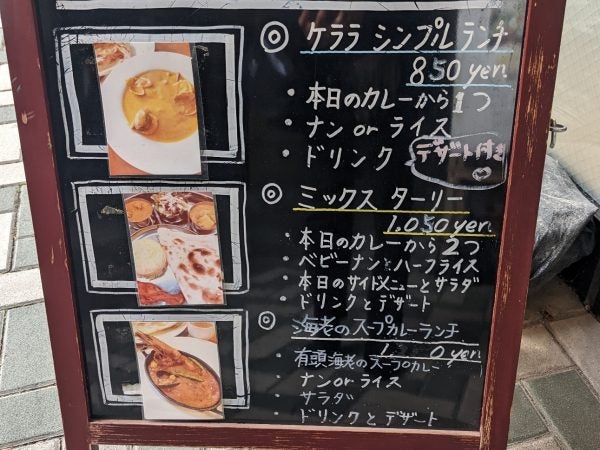 ◎ ケララ シンプルランチ
850yen
・本日のカレーから1つ
・ナン or ライス
・ドリンク デザート付き
◎ ミックス ターリー
1,050yen
・本日のカレーから2つ
・ベビーナンとハーフライス
・本日のサイドメニューとサラダ
・ドリンクとデザート
◎ 海老のスープカレーランチ
yen
・有頭海老のスープカレー
・ナン or ライス
・サラダ
・ドリンクとデザート